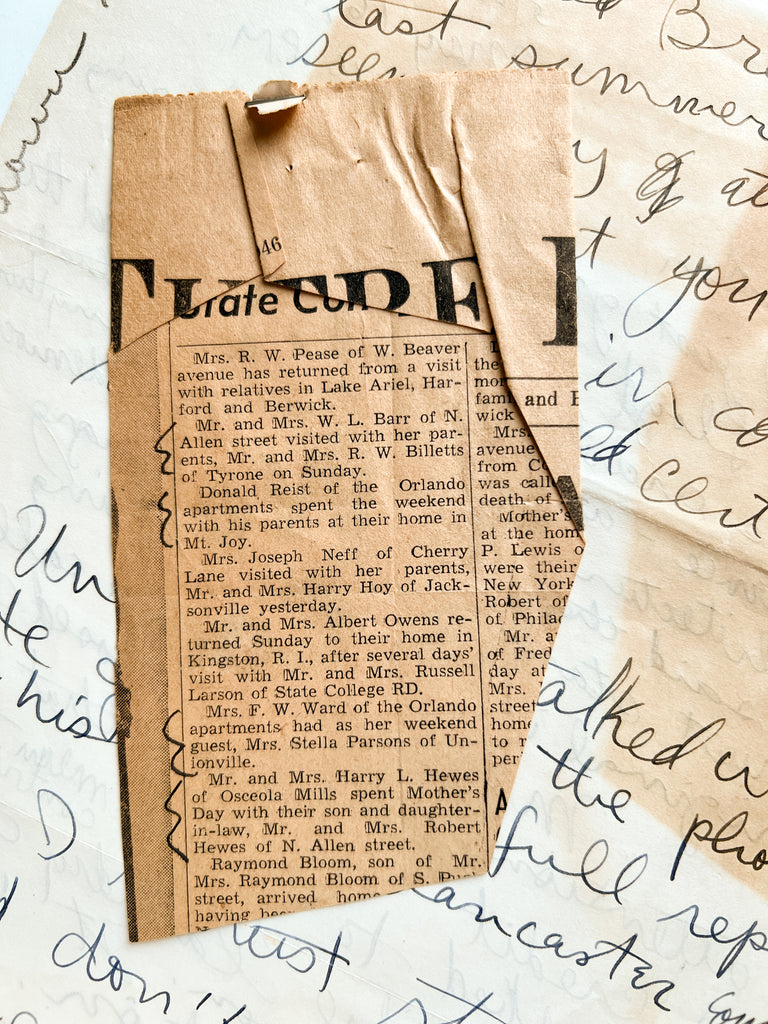 last
Bre
summer
46
you
State Col
Mrs. R. W. Pease of W. Beaver
avenue has returned from a visit
with relatives in Lake Ariel, Har-
ford and Berwick.
Mr. and Mrs. W. L. Barr of N.
Allen street visited with her par-
ents, Mr. and Mrs. R. W. Billetts
of Tyrone on Sunday.
Donald Reist of the Orlando
apartments spent the weekend
with his parents at their home in
Mt. Joy.
Mrs. Joseph Neff of Cherry
Lane visited with her parents,
Mr. and Mrs. Harry Hoy of Jack-
sonville yesterday.
Mr. and Mrs. Albert Owens re-
turned Sunday to their home in
Kingston, R. I., after several days'
visit with Mr. and Mrs. Russell
Larson of State College RD.
Mrs. F. W. Ward of the Orlando
apartments had as her weekend
guest, Mrs. Stella Parsons of Un-
ionville.
Mr. and Mrs. Harry L. Hewes
of Osceola Mills spent Mother's
Day with their son and daughter-
in-law, Mr. and Mrs. Robert
Hewes of N. Allen street.
Raymond Bloom, son of Mr.
Mrs. Raymond Bloom of S.
street, arrived home
having
the
mor
fami
wick
and
Mrs.
avenue
from Co
was call
death of
Mother's
at the hom
P. Lewis o
were their
New York
Robert of
of Philad
Mr. a
of Fred
day at
Mrs.
street
home
to r
per
A
in
his
alked
the pho
full rep
ancaster
don't